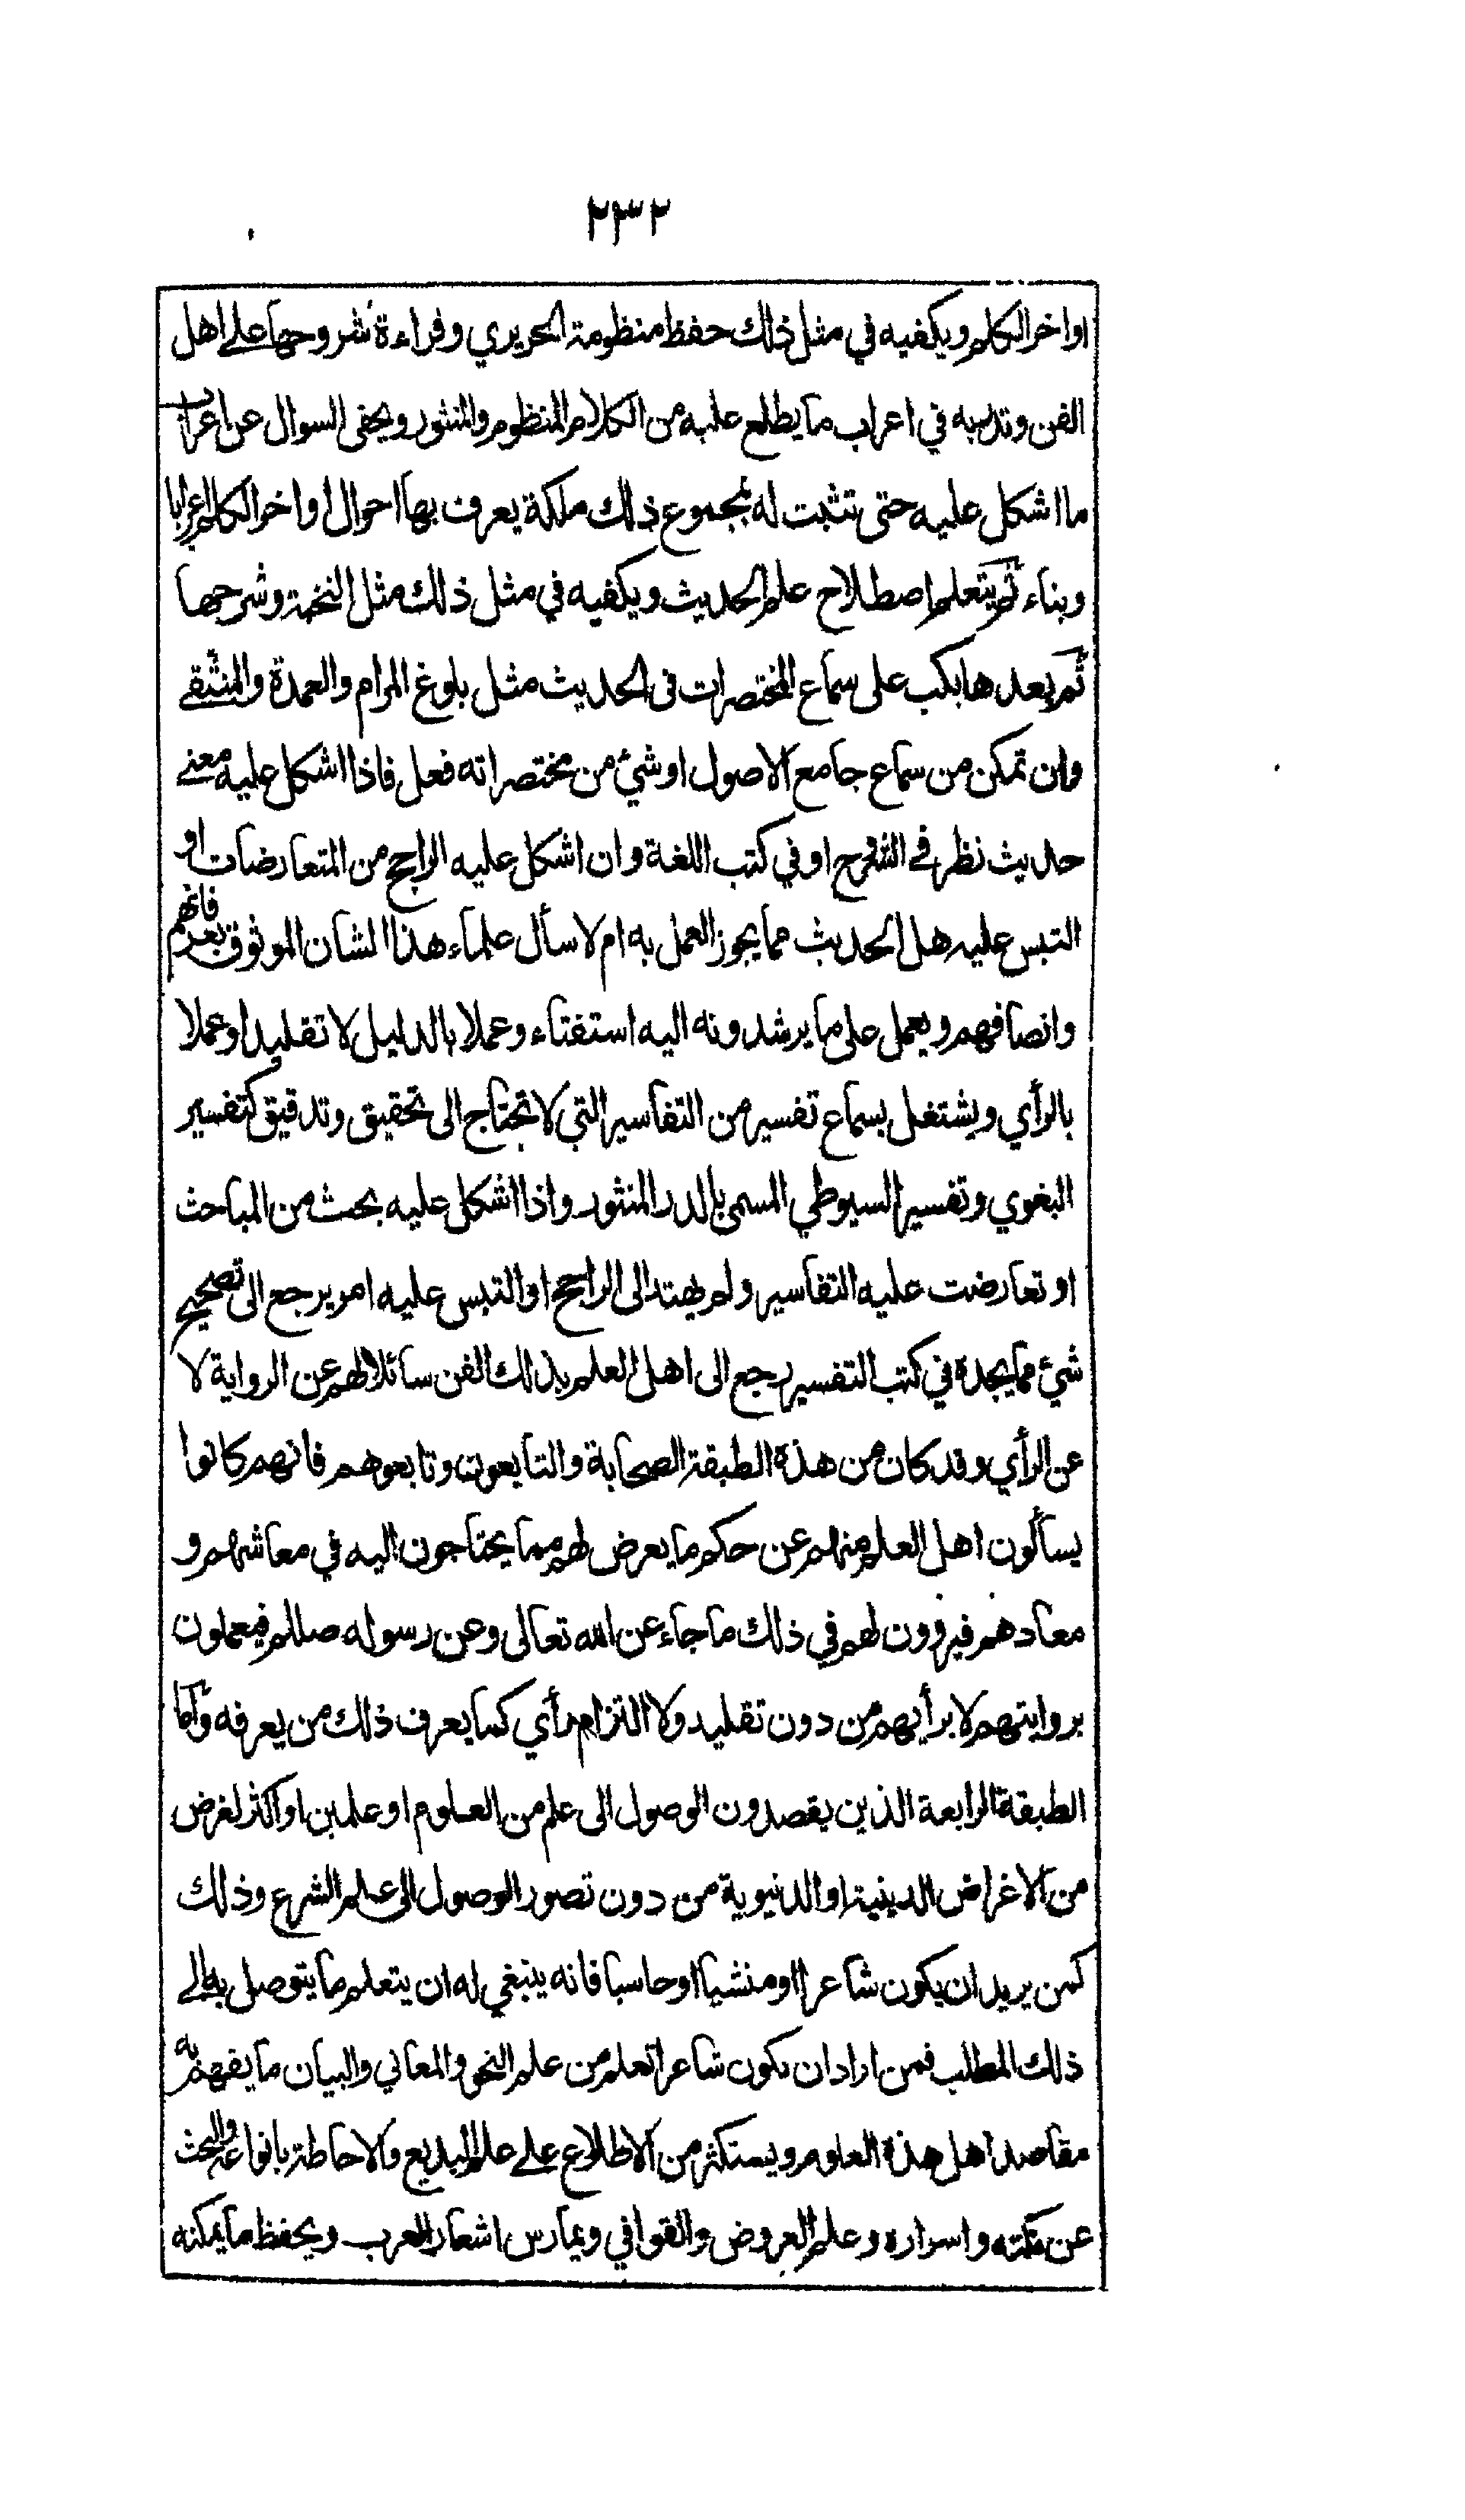 ٢٣٢
اواخر الكلم ويكفيه في مثل ذلك حفظ منظومة الحريري وقراءة شروحها على اهل
الفن وتدربه في اعراب ما يطلع عليه من الكلام المنظوم والمنثور ويحفى السوال عن اعراب
ما اشكل عليه حتى تثبت له بمجموع ذلك ملكة يعرف بها احوال اواخر الكلم اعرابا
وبناء ثم يتعلم اصطلاح علم الحديث ويكفيه في مثل ذلك مثل النخبة وشرحها
ثم بعدها يكب على سماع المختصرات في الحديث مثل بلوغ المرام والعمدة والمنتقى
وان تمكن من سماع جامع الاصول او شئ من مختصراته فعل فاذا اشكل عليه معنى
حديث نظر في الشروح او في كتب اللغة وان اشكل عليه الراجح من المتعارضات او
التبس عليه هل الحديث مما يجوز العمل به ام لا سأل علماء هذا الشان الموثوق بعرفانهم
وانصافهم ويعمل على ما يرشدونه اليه استفتاء وعملا بالدليل لا تقليدا وعملا
بالرأي ويشتغل بسماع تفسير من التفاسير التي لا تحتاج الى تحقيق وتدقيق كتفسير
البغوي وتفسير السيوطي المسمى بالدر المنثور واذا اشكل عليه بحث من المباحث
او تعارضت عليه التفاسير ولم يهتد الى الراجح او التبس عليه امر يرجع الى تصحيح
شئ مما يجده في كتب التفسير رجع الى اهل العلم بذلك الفن سائلا لهم عن الرواية لا
عن الرأي وقد كان من هذه الطبقة الصحابة والتابعون وتابعوهم فانهم كانوا
يسألون اهل العلم منهم عن حكم ما يعرض لهم مما يحتاجون اليه في معاشهم و
معادهم فيروون لهم في ذلك ما جاء عن الله تعالى وعن رسوله صللم فيعملون
بروايتهم لا برأيهم من دون تقليد ولا التزام رأي كما يعرف ذلك من يعرفه واما
الطبقة الرابعة الذين يقصدون الوصول الى علم من العلوم او علمين او اكثر لغرض
من الاغراض الدينية او الدنيوية من دون تصور الوصول الى علم الشرع وذلك
كمن يريد ان يكون شاعرا او منشيا او حاسبا فانه ينبغي له ان يتعلم ما يتوصل به الى
ذلك المطلب فمن اراد ان يكون شاعرا تعلم من علم النحو والمعاني والبيان ما يفهم به
مقاصد اهل هذه العلوم ويستكثر من الاطلاع على علم البديع والاحاطة بانواعه والبحث
عن نكته واسراره وعلم العروض والقوافي ويمارس اشعار العرب ويحفظ ما يمكنه